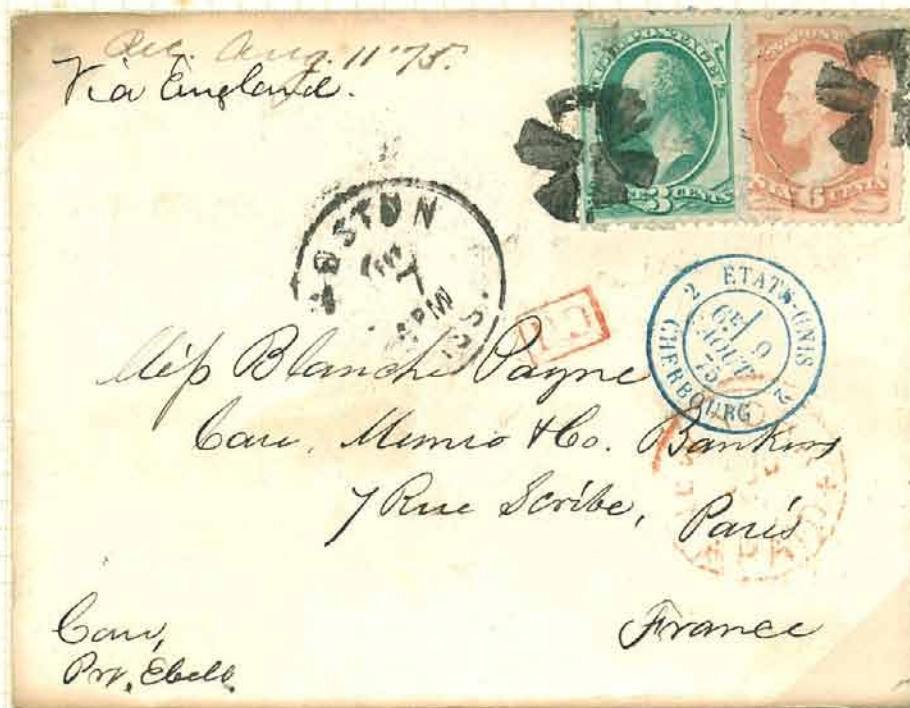 Rec. Aug. 11 '75.
Via England.
U.S. POSTAGE
3 CENTS
SIX 6 CENTS
BOSTON
7
PM
PD
2 ETATS-UNIS 2
6E 9
AOUT
75
CHERBOURG
Miss Blanche Payne
Care, Munro & Co. Bankers
7 Rue Scribe, Paris
France
Care,
Prof. Ebell